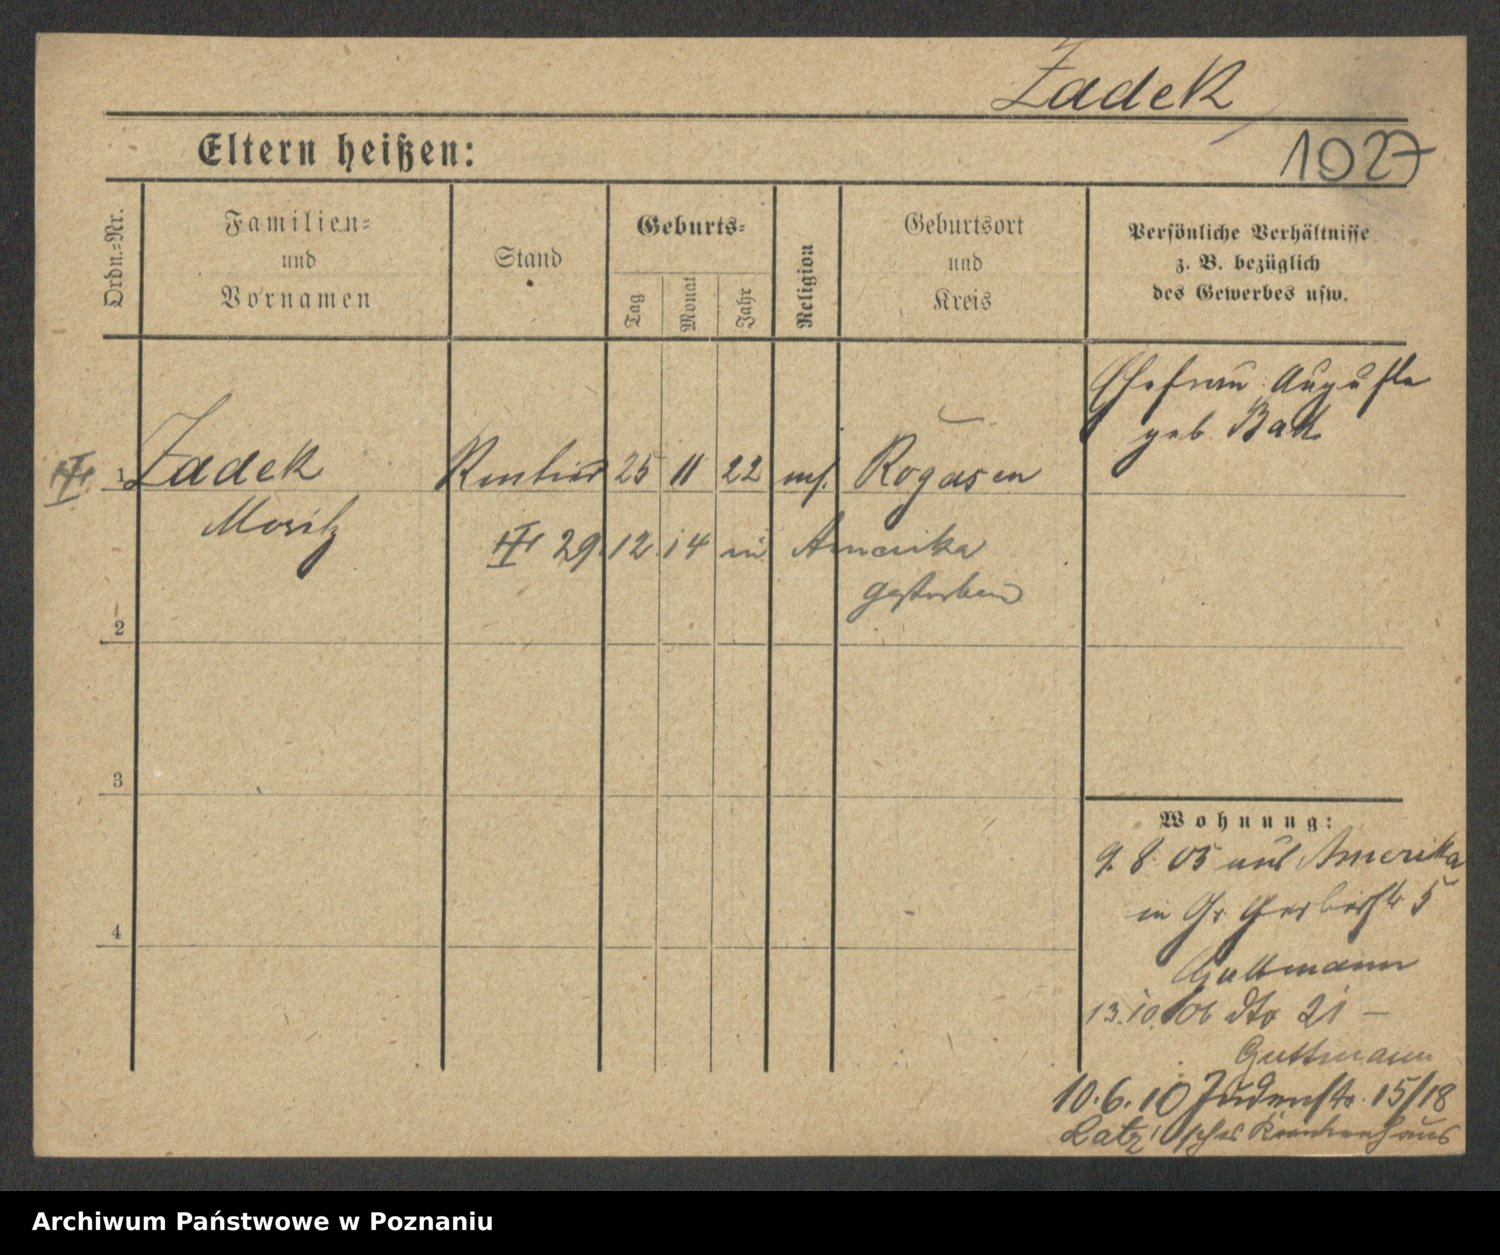 Zadek
Eltern heißen:
1027
Ordn.-Nr.
Familien-
und
Vornamen
Stand
Geburts-
Tag
Monat
Jahr
Religion
Geburtsort
und
Kreis
Persönliche Verhältnisse
z. B. bezüglich
des Gewerbes usw.
Ehefrau Auguste
geb.
1 Zadek Rentier 25 11 22 mos. Rogasen
Moritz
29. 12. 14 in Amerika
gestorben
2
3
4
Wohnung:
9. 8. 05 aus Amerika
in Gr. Gerberstr 5
Guttmann
13. 10. 06 dto 21 –
Guttmann
10. 6. 10 Judenstr. 15/18
Latz'sches Krankenhaus
Archiwum Państwowe w Poznaniu